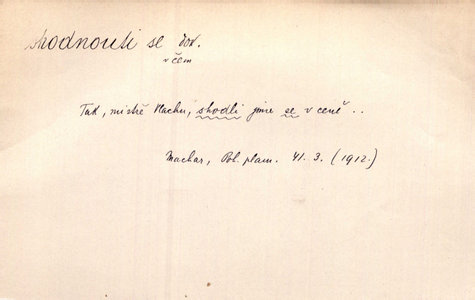 shodnouti se dok.
v čem
Tak, mistře Machu, shodli jsme se v ceně ..
Machar, Boh. plam. 41. 3. (1912.)